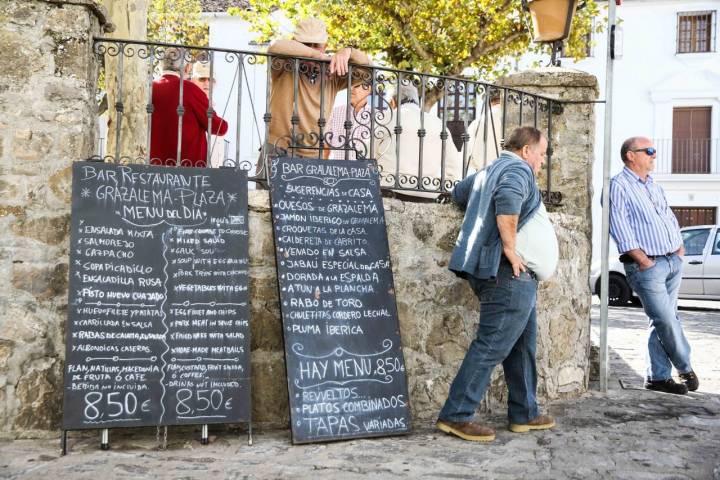 BAR RESTAURANTE
GRAZALEMA-PLAZA
MENU DEL DIA
ENSALADA MIXTA
SALMOREJO
GAZPACHO
SOPA PICADILLO
ENSALADILLA RUSA
PISTO HUEVO CUAJADO
HUEVO FRITO Y PATATAS
CARRILLADA EN SALSA
ALBONDIGAS CASERAS
FLAN, NATILLAS, MACEDONIA
DE FRUTA Ó CAFE
BEBIDA NO INCLUIDA
8,50 €
TO CHOOSE
MIXED SALAD
SOUP WITH
VEGETABLES WITH EGG
PORK MEAT IN SPICE
HOME-MADE MEATBALLS
FLAN, CUSTARD
Ó COFFEE
DRINKS NOT INCLUDED
8,50 €
BAR GRALALEMA PLAZA
SUGERENCIAS DE CASA
QUESOS DE GRAZALEMA
JAMÓN IBERICO DE
CROQUETAS DE LA CASA
CALDERETA DE CABRITO
VENADO EN SALSA
JABALÍ ESPECIAL DE CASA
DORADA A LA ESPALDA
ATUN A LA PLANCHA
RABO DE TORO
CHULETITAS CORDERO LECHAL
PLUMA IBERICA
HAY MENU 8,50
REVUELTOS
PLATOS COMBINADOS
TAPAS VARIADAS